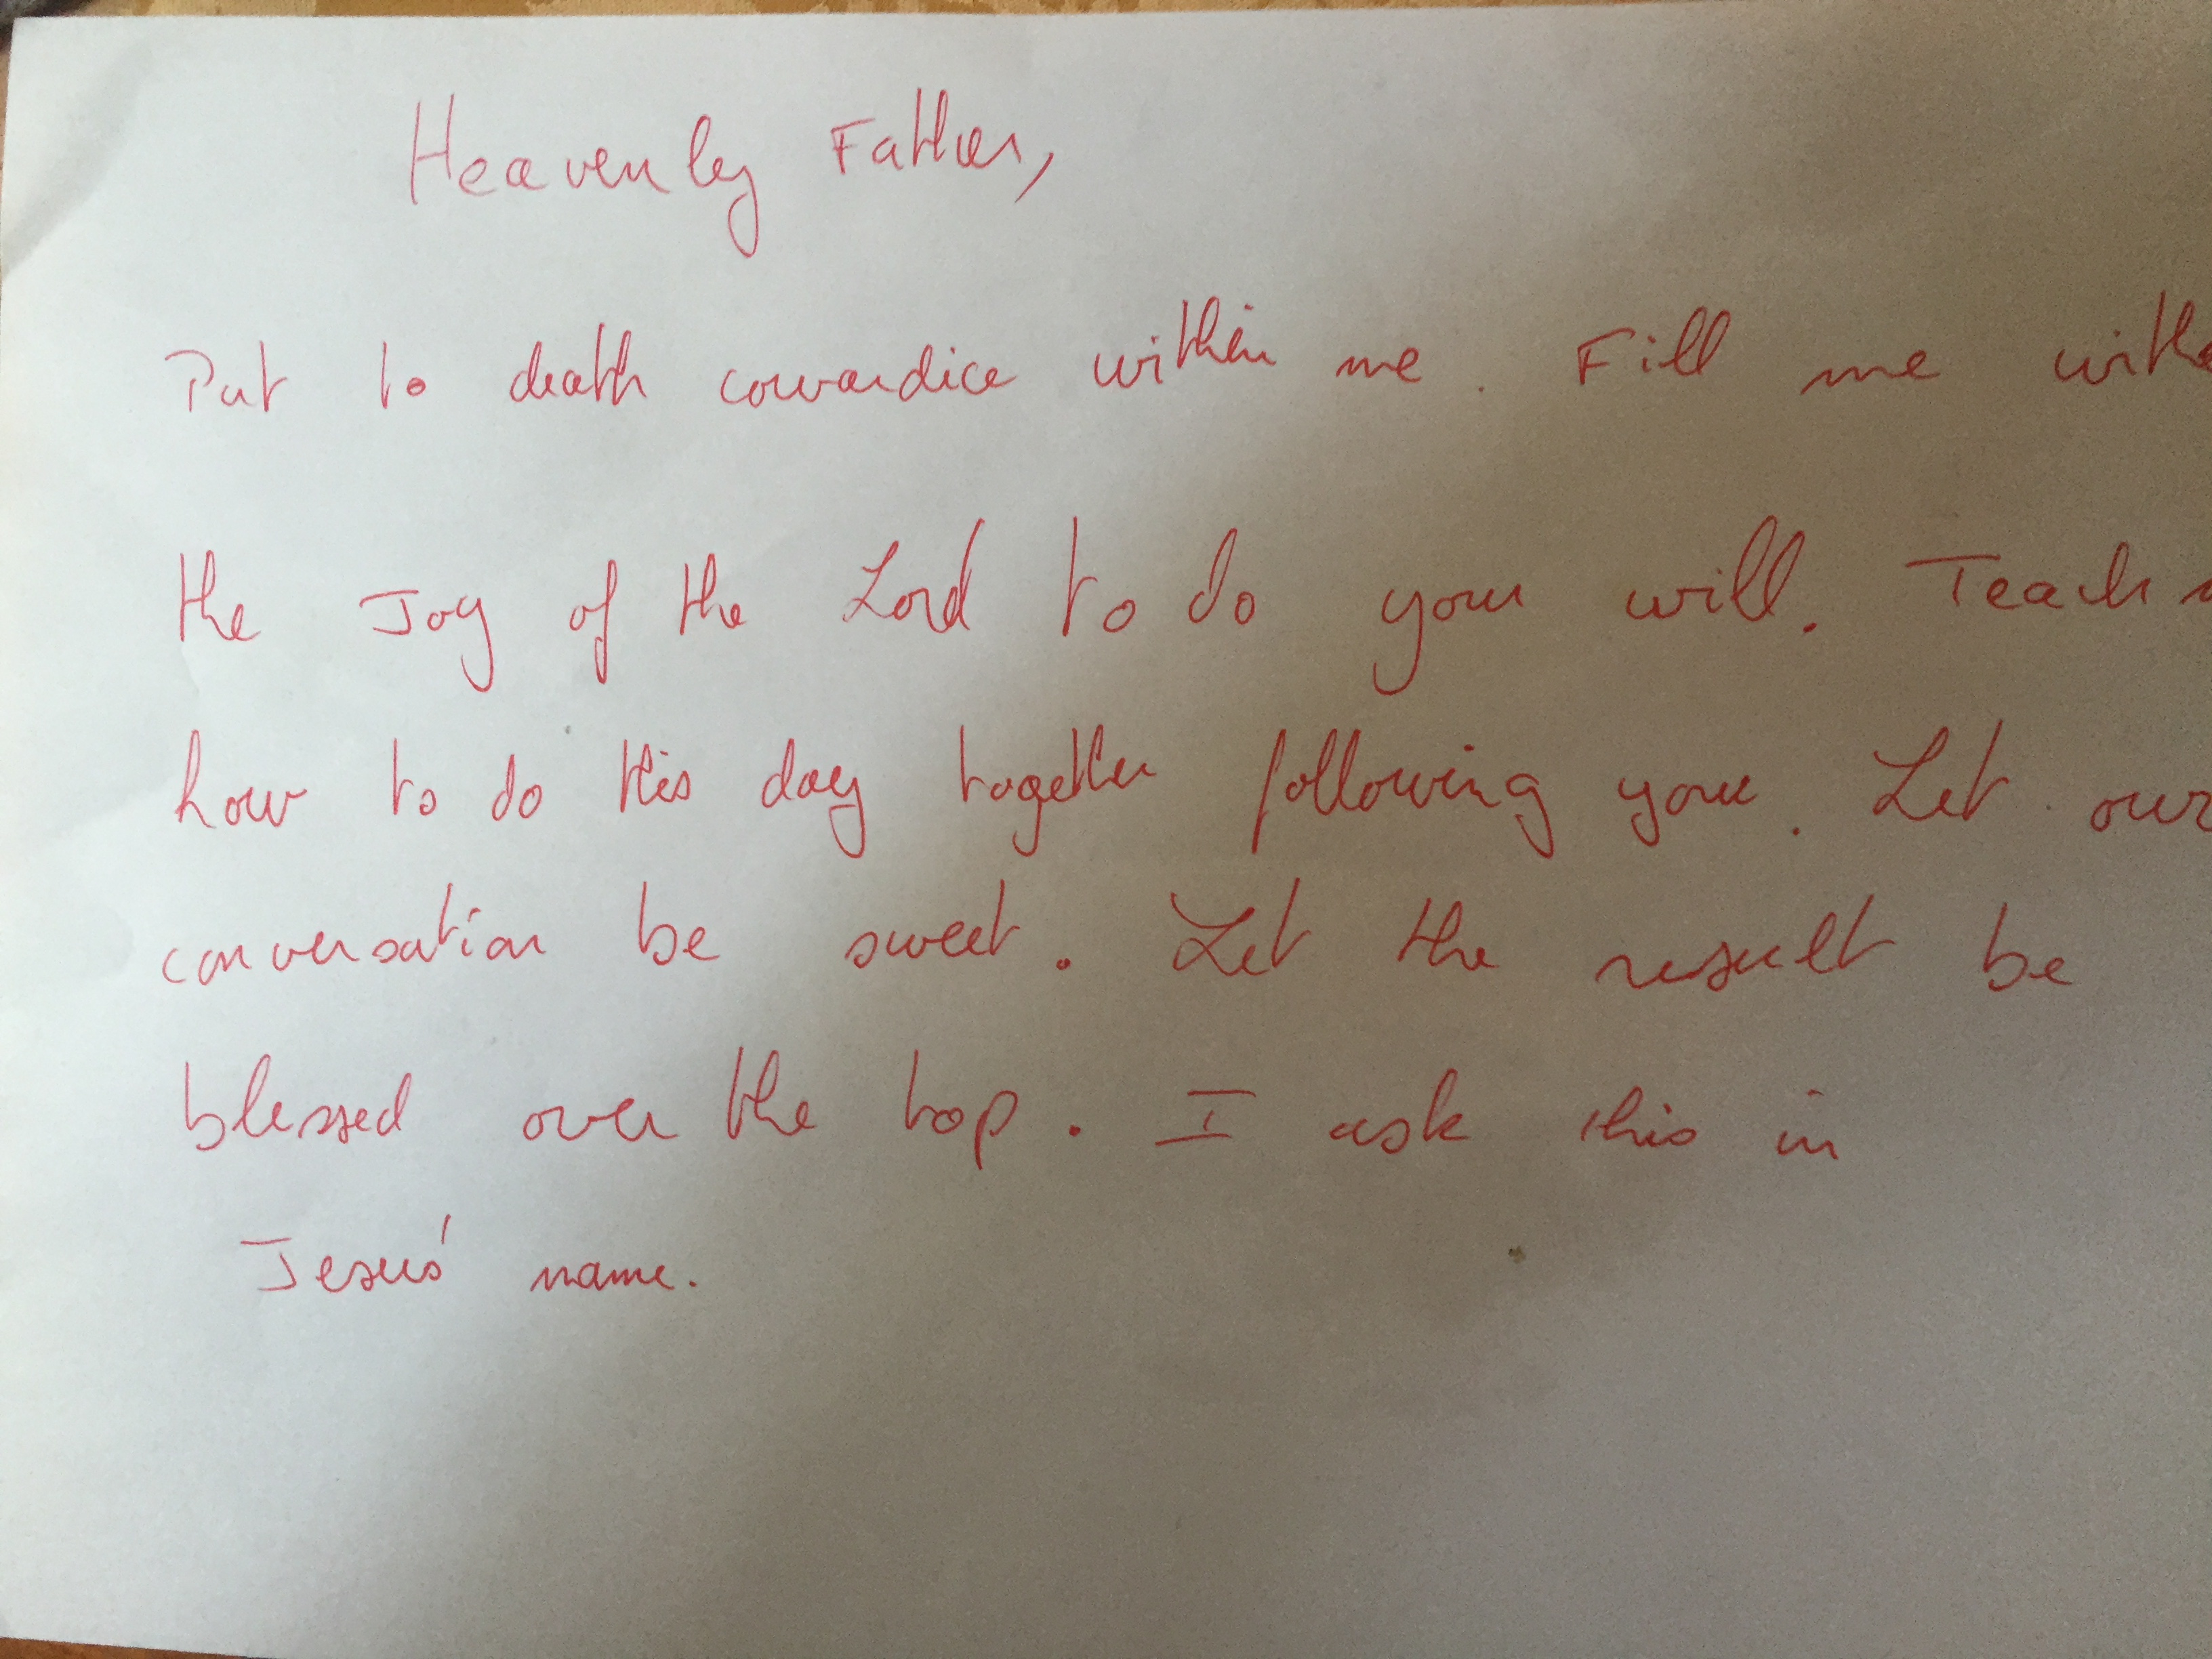 Heavenly Father,
Put to death cowardice within me. Fill me with
the Joy of the Lord to do your will. Teach
how to do this day together following you. Let our
conversation be sweet. Let the result be
blessed over the top. I ask this in
Jesus' name.